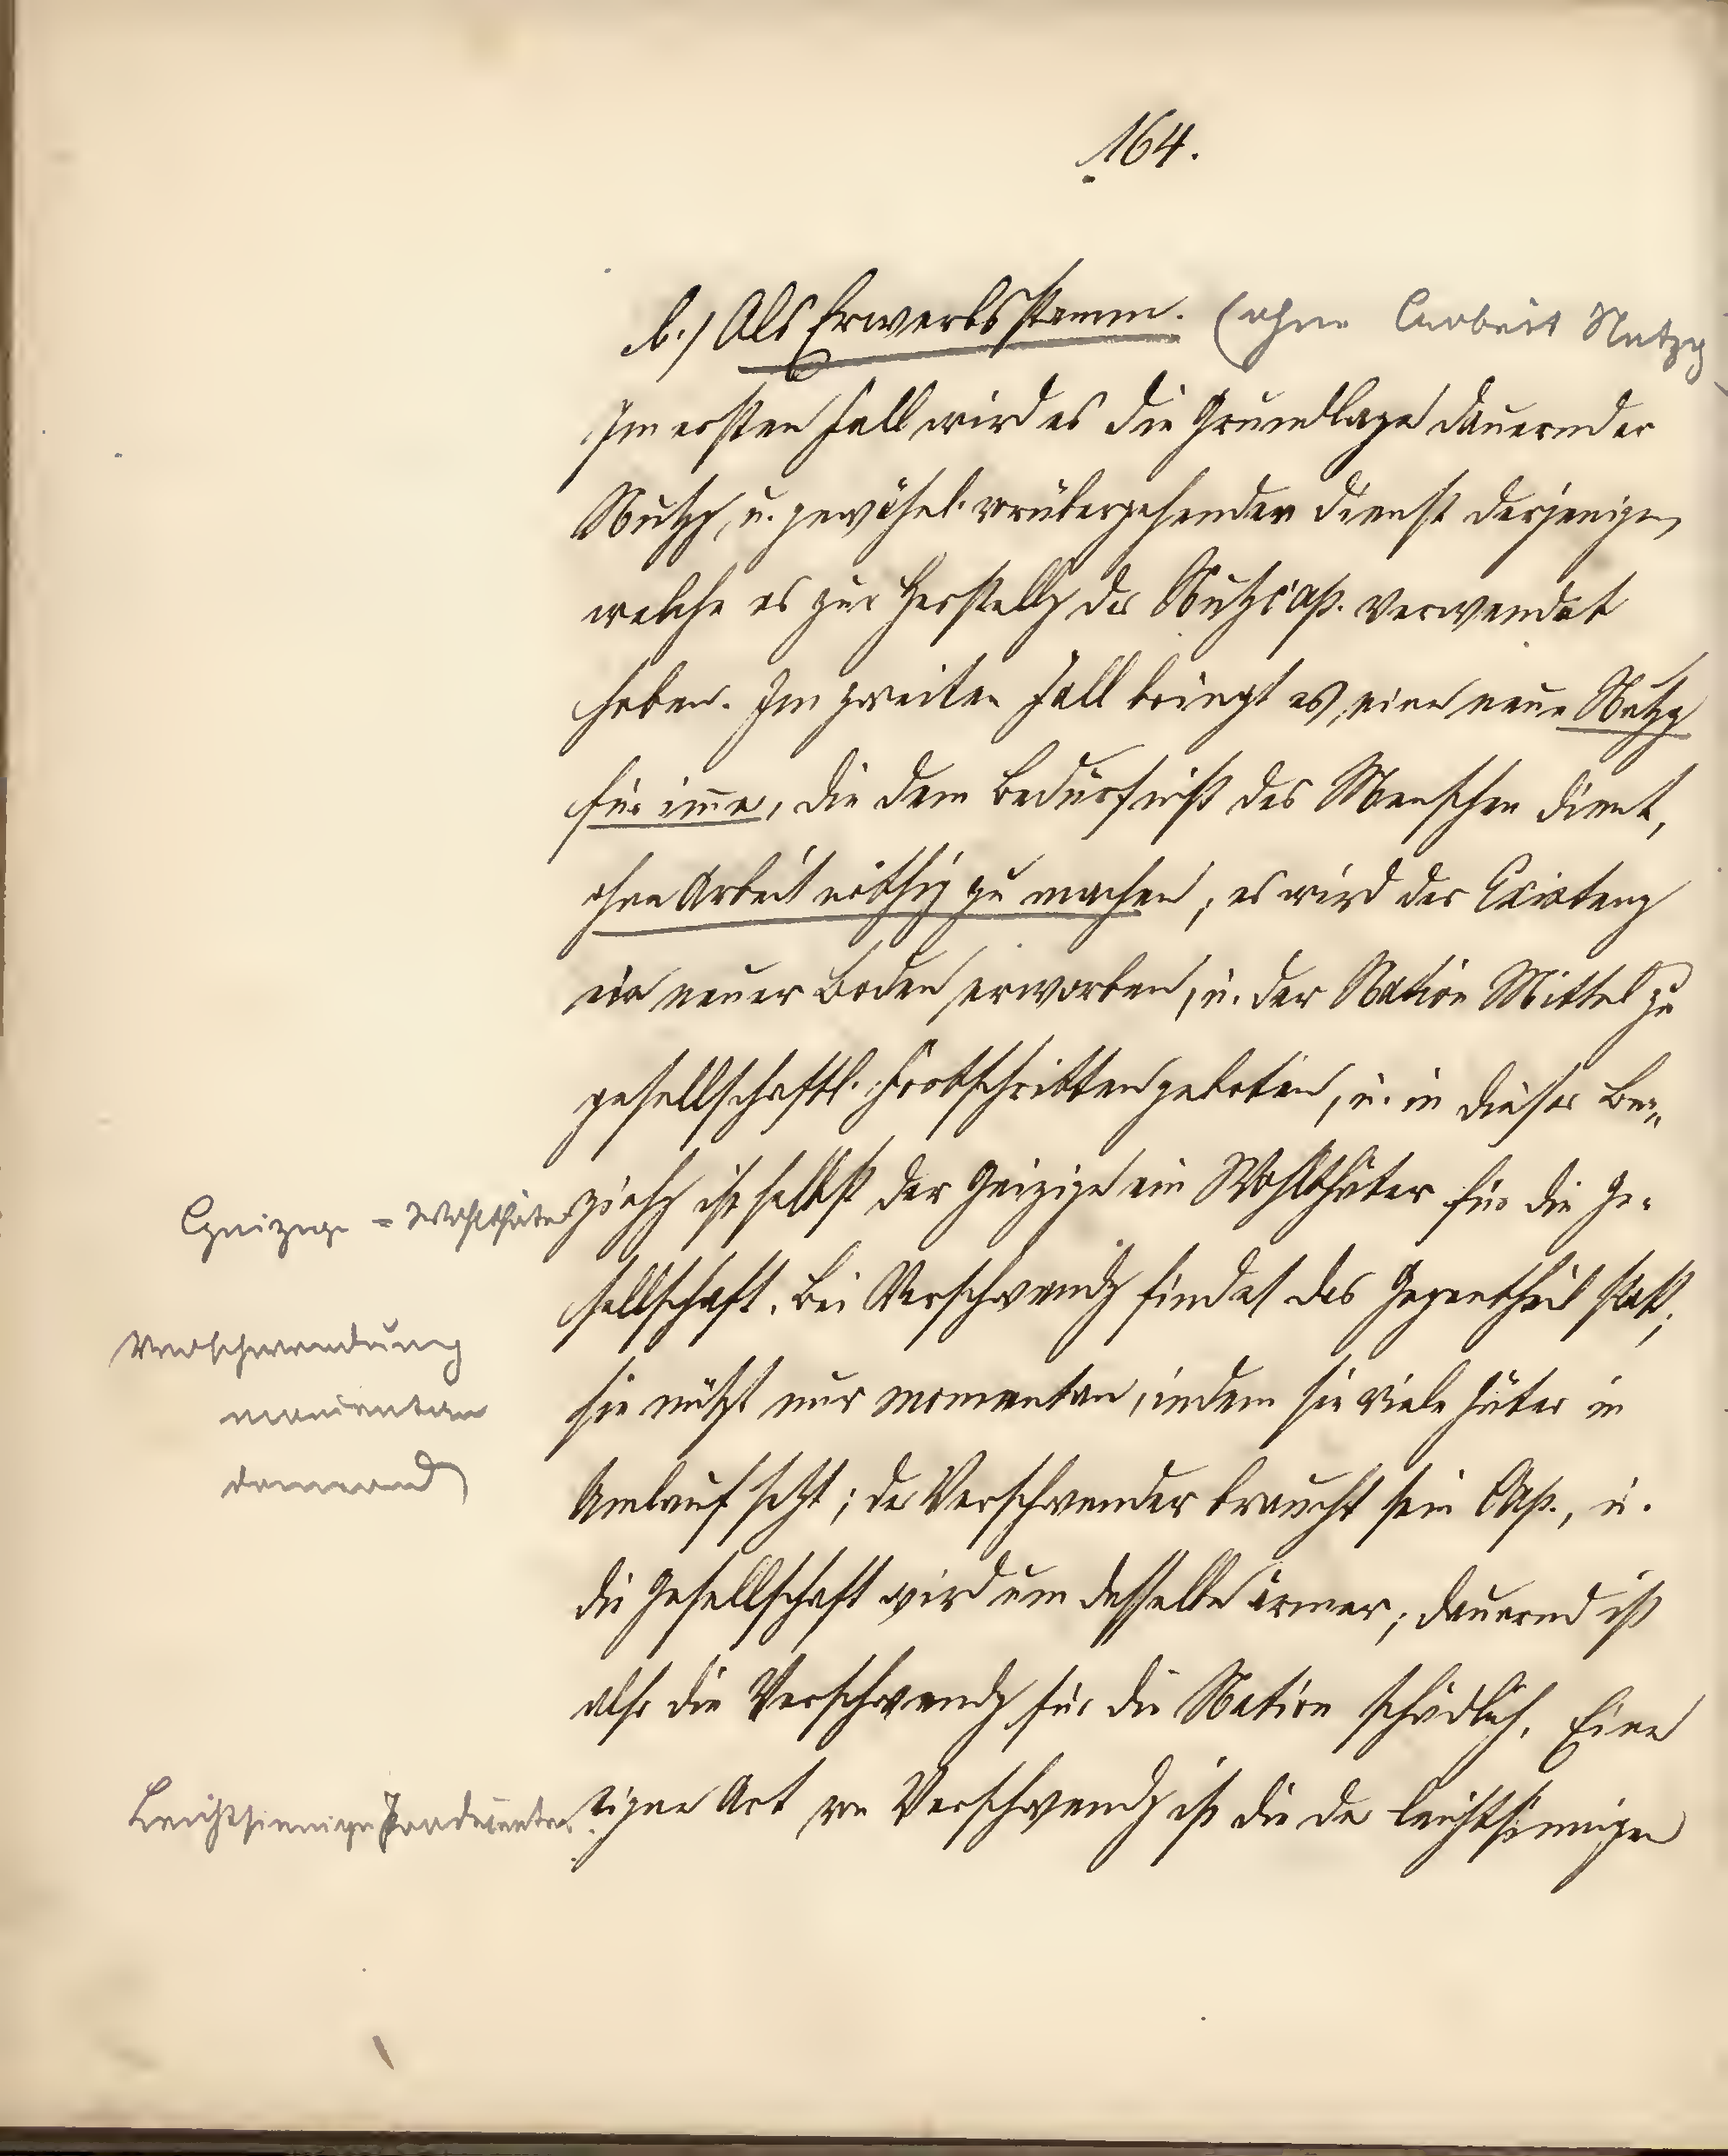 164.
b.) Als Erwerbsstamm. (ohne Arbeit Nutzg
Im ersten Fall wird es die Grundlage dauernder
Nutzg, u. gewöhnl. vorübergehender Dienst derjenigen,
welche es zur Herstellg des Nutzcap. verwendet
haben. Im zweiten Fall bringt es eine neue Nutzg
für imer, die dem Bedürfniß des Menschen dient,
ohne Arbeit nöthig zu machen, es wird der Existenz
ein neuer Boden erworben, u. der Nation Mittel zu
gesellschaftl. Fortschritten geboten, u. in dieser Be-
Geizige = Wohlthäter
ziehg ist selbst der Geizige ein Wohlthäter für die Ge-
sellschaft. Bei Verschwendg findet das Gegentheil statt;
Verschwendung
sie nützt nur momentan, indem sie viele Güter in
momentan
Umlauf setzt; der Verschwender braucht sein Cap., u.
dauernd
die Gesellschaft wird um desselbe ärmer; dauernd ist
also die Verschwendg für die Nation schädlich. Eine
Leichtsinnige Producenten
eigne Art von Verschwendg ist die der leichtsinnigen